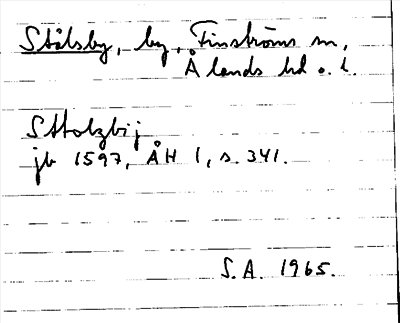 Stålsby, by, Finströms sn,
Ålands hd o. l.
Stolzbij
jb 1597, ÅH 1, s. 341.
S.A. 1965.